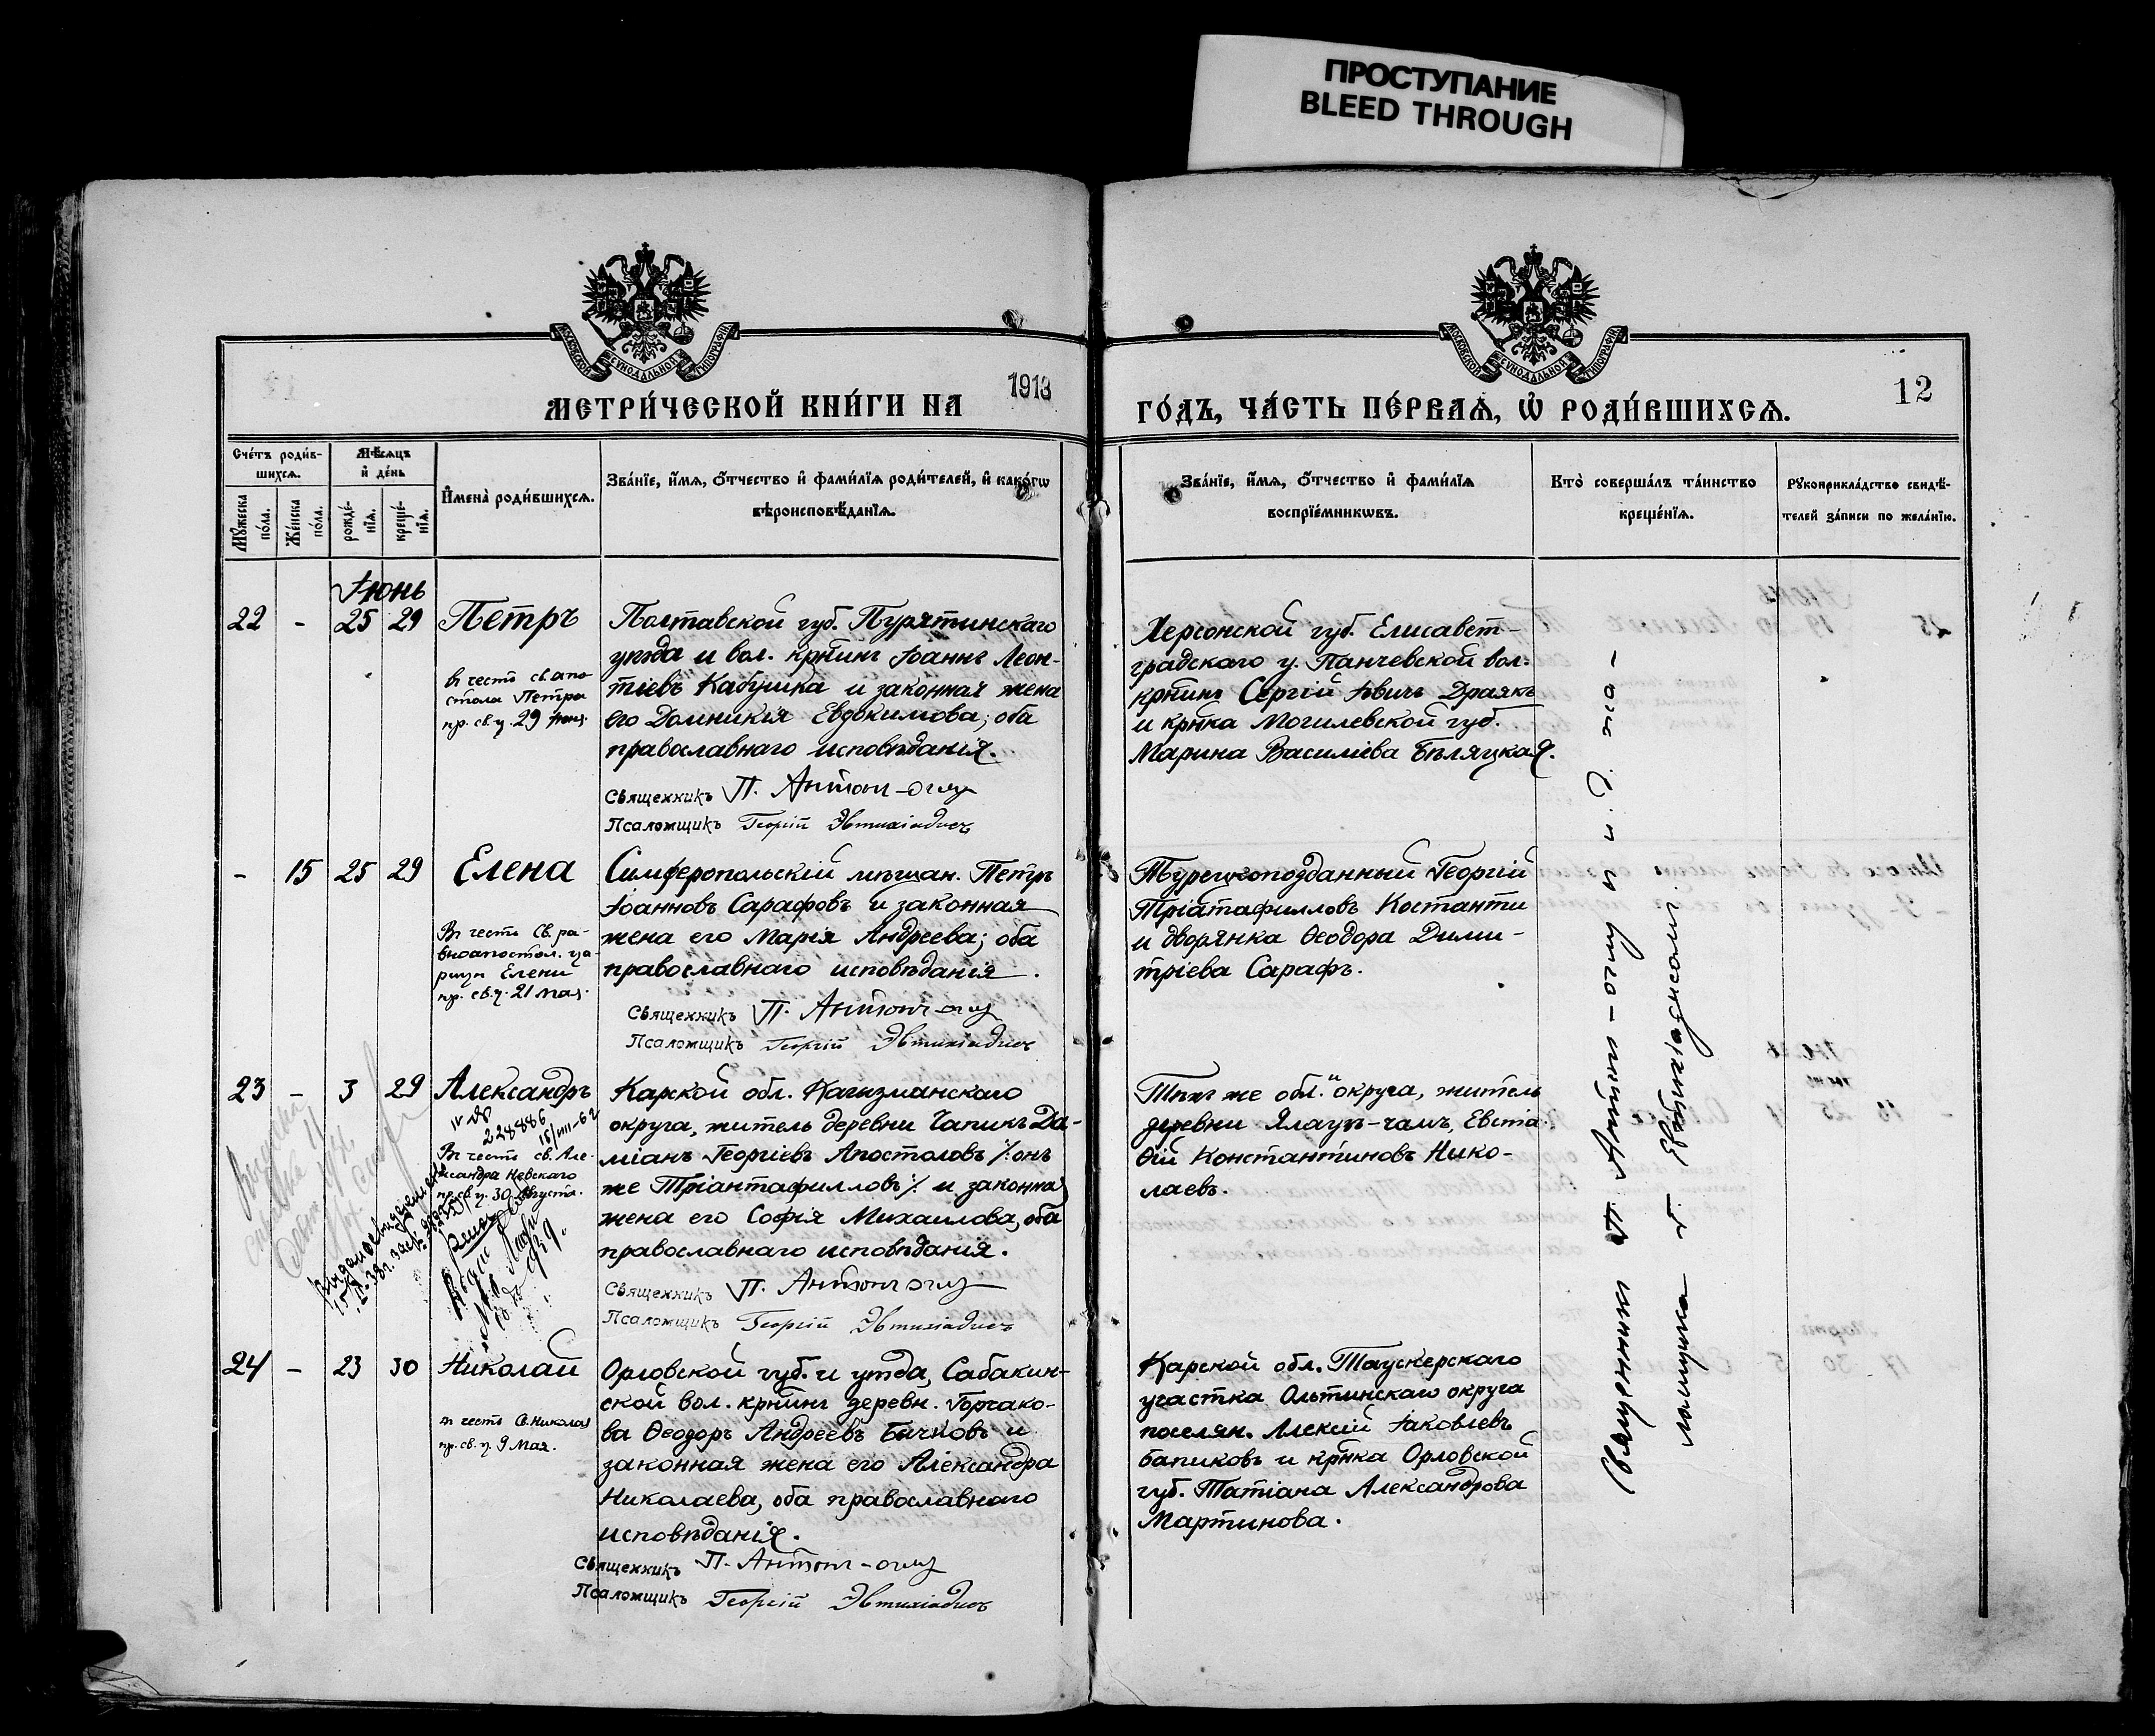 ПРОСТУПАНИЕ
BLEED THROUGH
МОСКОВСКОЙ СѴНОДАЛЬНОЙ ТИПОГРАФІИ
МОСКОВСКОЙ СѴНОДАЛЬНОЙ ТИПОГРАФІИ
МЕТРИ́ЧЕСКОЙ КНИ́ГИ НА 1913
ГО́ДЪ, ЧА́СТЬ ПЕ́РВАѦ, Ѡ҆ РОДИ́ВШИХСѦ.
12
Сче́тъ роди́в-
шихсѧ.
Мꙋ́жеска по́ла.
Же́нска по́ла.
Мѣ́сѧцъ
и҆ де́нь
рожде́-
нїѧ.
креще́-
нїѧ.
И҆мена̀ роди́вшихсѧ.
Зва́нїе, и҆́мѧ, ѻ҆́тчество и҆ фами́лїѧ роди́телей, и҆ како́гѡ
вѣроисповѣ́данїѧ.
Зва́нїе, и҆́мѧ, ѻ҆́тчество и҆ фами́лїѧ
воспрїе́мникѡвъ.
Кто̀ соверша́лъ та́инство
креще́нїѧ.
Рꙋкоприкла́дство свидѣ́-
телей за́писи по жела́нїю.
Іюнь
22 - 25 29 Петръ
въ честь св. апо
стола Петра
пр. св. ц. 29 іюня.
Полтавской губ. Пурятинскаго
уѣзда и вол. крнинъ Іоаннъ Леон-
тіевъ Кабушка и законная жена
его Домникія Евдокимова; оба
православнаго исповѣданія.
Священникъ П. Антонъ-оглу
Псаломщикъ Георгій Эвтихіадисъ
Херсонской губ. Елисавет-
градскаго у. Панчевской вол.
крнинъ Сергій Іовичъ Драякъ
и крнка Могилевской губ.
Марина Василіева Бѣляцкая.
- 15 25 29 Елена
Въ честь Св. ра-
вноапостол. ца-
рицы Елены
пр. св. ц. 21 мая.
Симферопольскій мѣщан. Петръ
Іоанновъ Сарафовъ и законная
жена его Марія Андреева; оба
православнаго исповѣданія.
Священникъ П. Антонъ-оглу
Псаломщикъ Георгій Эвтихіадисъ
Турецкоподданный Георгій
Тріатафилловъ Костанти
и дворянка Ѳеодора Дими-
тріева Сарафъ.
23 - 3 29 Александръ
228886
15/VIII-62
Въ честь св. Але-
ксандра Невскаго
пр. св. ц. 30 Августа.
Карской обл. Кагызманскаго
округа, житель деревни Чапикъ Да-
міанъ Георгіевъ Апостоловъ /:онъ
же Тріантафилловъ:/ и законная
жена его Софія Михаилова, оба
православнаго исповѣданія.
Священникъ П. Антонъ оглу
Псаломщикъ Георгій Эвтихіадисъ
Тѣхъ же обл. и округа, житель
деревни Ялаузъ-чамъ, Евста-
ѳій Константиновъ Нико-
лаевъ.
24 - 23 30 Николай
въ честь Св. Николая
пр. св. ц. 9 Мая.
Орловской губ. и уѣзда, Сабакин-
ской вол. крнинъ деревн. Горчако-
ва Ѳеодоръ Андреевъ Бычковъ и
законная жена его Александра
Николаева, оба православнаго
исповѣданія.
Священникъ П. Антонъ-оглу
Псаломщикъ Георгій Эвтихіадисъ
Карской обл. Таускерскаго
участка Ольтинскаго округа
поселян. Алексій Іаковлевъ
Бапиковъ и крнка Орловской
губ. Татіана Александрова
Мартинова.
Священникъ П. Антонъ-оглу и п. д. пса-
ломщика Г. Евтихіадисомъ.